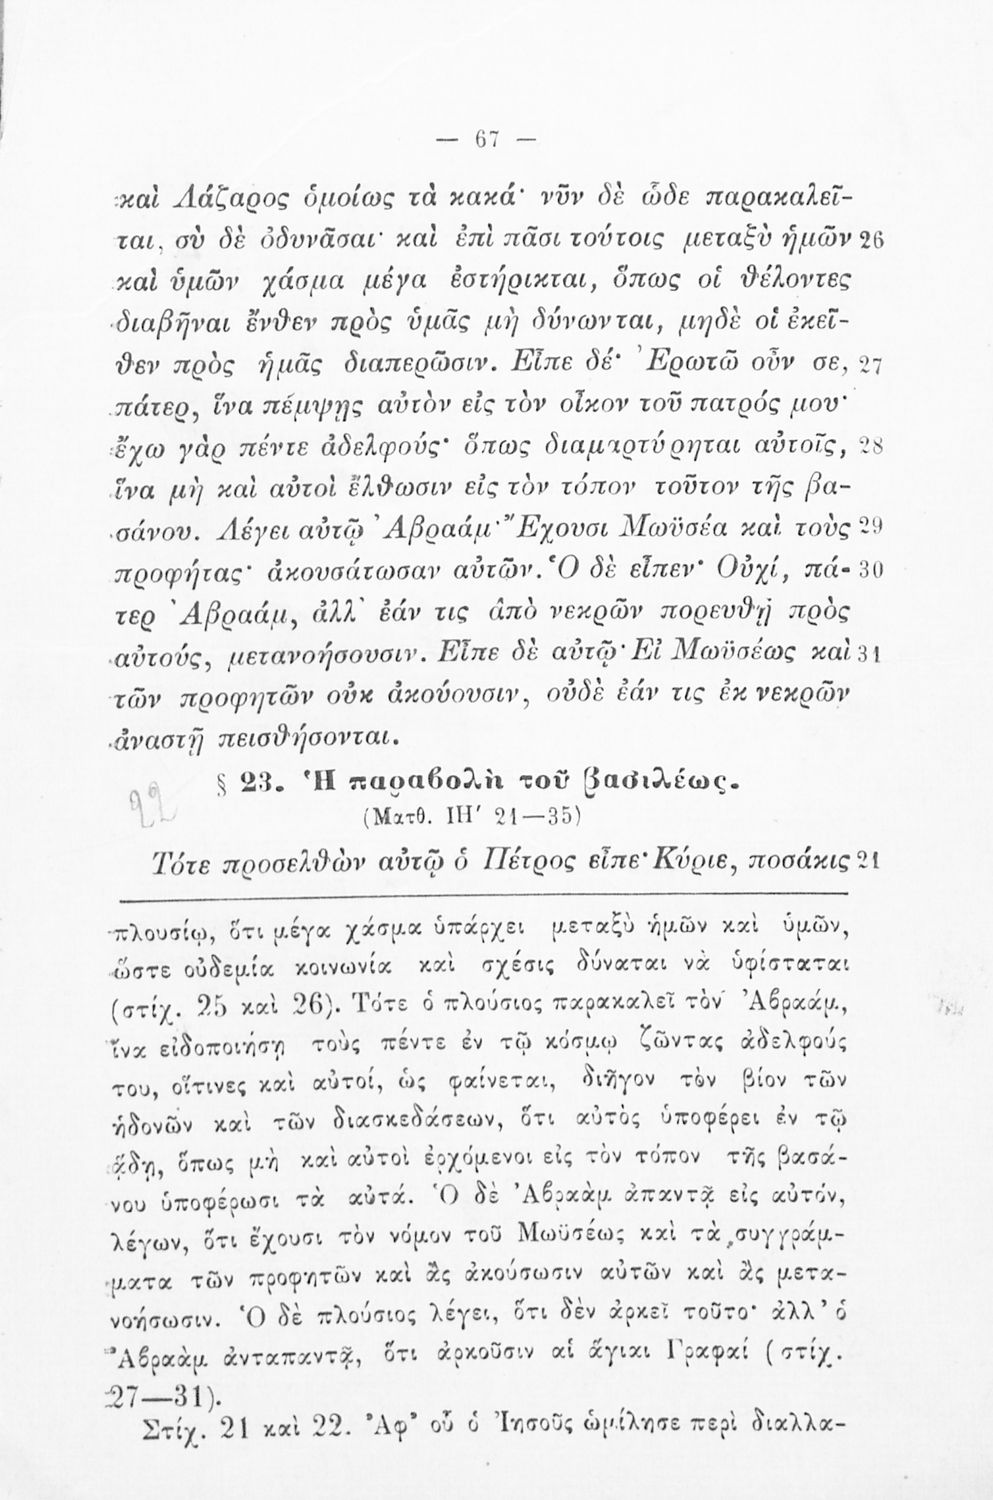 — 67 —
καὶ Λάζαρος ὁμοίως τὰ κακά· νῦν δὲ ὧδε παρακαλεῖ-
ται, σὺ δὲ ὀδυνᾶσαι· καὶ ἐπὶ πᾶσι τούτοις μεταξὺ ἡμῶν 26
καὶ ὑμῶν χάσμα μέγα ἐστήρικται, ὅπως οἱ θέλοντες
διαβῆναι ἔνθεν πρὸς ὑμᾶς μὴ δύνωνται, μηδὲ οἱ ἐκεῖ-
θεν πρὸς ἡμᾶς διαπερῶσιν. Εἶπε δέ· Ἐρωτῶ οὖν σε, 27
πάτερ, ἵνα πέμψῃς αὐτὸν εἰς τὸν οἶκον τοῦ πατρός μου·
ἔχω γὰρ πέντε ἀδελφούς· ὅπως διαμαρτύρηται αὐτοῖς, 28
ἵνα μὴ καὶ αὐτοὶ ἔλθωσιν εἰς τὸν τόπον τοῦτον τῆς βα-
σάνου. Λέγει αὐτῷ Ἀβραάμ· Ἔχουσι Μωϋσέα καὶ τοὺς 29
προφήτας· ἀκουσάτωσαν αὐτῶν. Ὁ δὲ εἶπεν· Οὐχί, πά- 30
τερ Ἀβραάμ, ἀλλ' ἐάν τις ἀπὸ νεκρῶν πορευθῇ πρὸς
αὐτούς, μετανοήσουσιν. Εἶπε δὲ αὐτῷ· Εἰ Μωϋσέως καὶ 31
τῶν προφητῶν οὐκ ἀκούουσιν, οὐδὲ ἐάν τις ἐκ νεκρῶν
ἀναστῇ πεισθήσονται.
§ 23. Ἡ παραβολὴ τοῦ βασιλέως.
22
(Ματθ. ΙΗ' 21—35)
Τότε προσελθὼν αὐτῷ ὁ Πέτρος εἶπε· Κύριε, ποσάκις 21
πλουσίῳ, ὅτι μέγα χάσμα ὑπάρχει μεταξὺ ἡμῶν καὶ ὑμῶν,
ὥστε οὐδεμία κοινωνία καὶ σχέσις δύναται νὰ ὑφίσταται
(στίχ. 25 καὶ 26). Τότε ὁ πλούσιος παρακαλεῖ τὸν Ἀβραάμ,
ἵνα εἰδοποιήσῃ τοὺς πέντε ἐν τῷ κόσμῳ ζῶντας ἀδελφούς
του, οἵτινες καὶ αὐτοί, ὡς φαίνεται, διῆγον τὸν βίον τῶν
ἡδονῶν καὶ τῶν διασκεδάσεων, ὅτι αὐτὸς ὑποφέρει ἐν τῷ
ᾅδῃ, ὅπως μὴ καὶ αὐτοὶ ἐρχόμενοι εἰς τὸν τόπον τῆς βασά-
νου ὑποφέρωσι τὰ αὐτά. Ὁ δὲ Ἀβραὰμ ἀπαντᾷ εἰς αὐτόν,
λέγων, ὅτι ἔχουσι τὸν νόμον τοῦ Μωϋσέως καὶ τὰ συγγράμ-
ματα τῶν προφητῶν καὶ ἂς ἀκούσωσιν αὐτῶν καὶ ἂς μετα-
νοήσωσιν. Ὁ δὲ πλούσιος λέγει, ὅτι δὲν ἀρκεῖ τοῦτο· ἀλλ' ὁ
Ἀβραὰμ ἀνταπαντᾷ, ὅτι ἀρκοῦσιν αἱ ἅγιαι Γραφαί (στίχ.
27—31).
Στίχ. 21 καὶ 22. Ἀφ' οὗ ὁ Ἰησοῦς ὡμίλησε περὶ διαλλα-